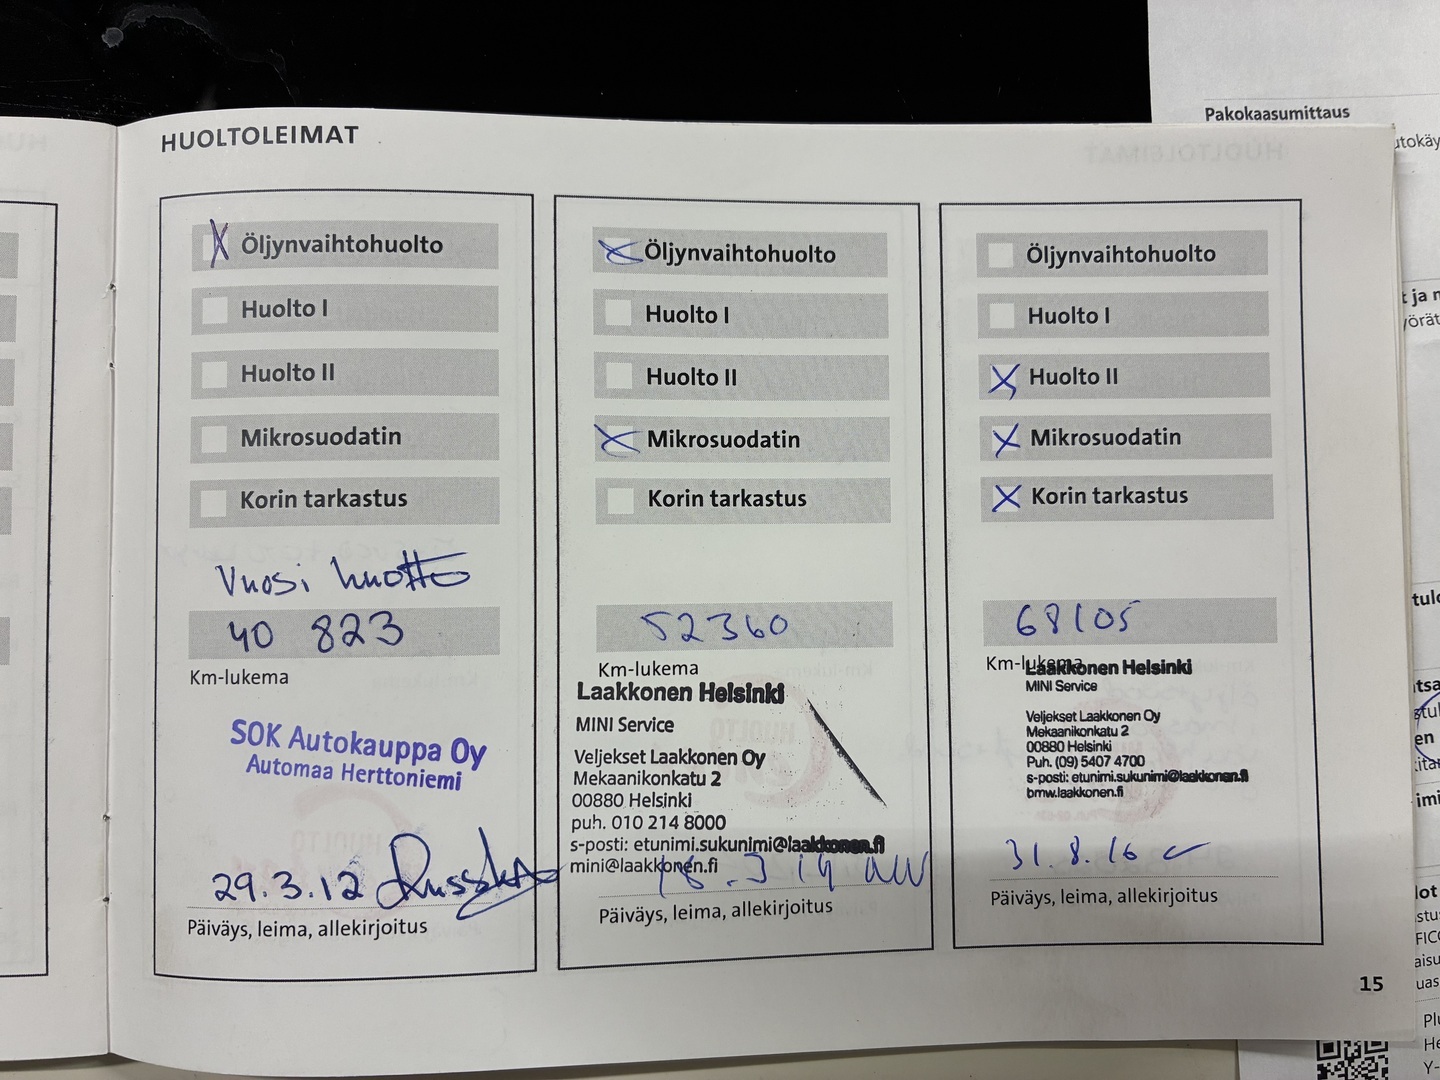 HUOLTOLEIMAT
Öljynvaihtohuolto
Huolto I
Huolto II
Mikrosuodatin
Korin tarkastus
Vuosi huolto
40 823
Km-lukema
SOK Autokauppa Oy
Automaa Herttoniemi
29.3.12
Päiväys, leima, allekirjoitus
Öljynvaihtohuolto
Huolto I
Huolto II
Mikrosuodatin
Korin tarkastus
52360
Km-lukema
Laakkonen Helsinki
MINI Service
Veljekset Laakkonen Oy
Mekaanikonkatu 2
00880 Helsinki
puh. 010 214 8000
s-posti: etunimi.sukunimi@laakkonen.fi
mini@laakkonen.fi
18.3 14
Päiväys, leima, allekirjoitus
Öljynvaihtohuolto
Huolto I
Huolto II
Mikrosuodatin
Korin tarkastus
68105
Km-lukema
Laakkonen Helsinki
MINI Service
Veljekset Laakkonen Oy
Mekaanikonkatu 2
00880 Helsinki
Puh. (09) 5407 4700
s-posti: etunimi.sukunimi@laakkonen.fi
bmw.laakkonen.fi
31.8.16
Päiväys, leima, allekirjoitus
15
Pakokaasumittaus